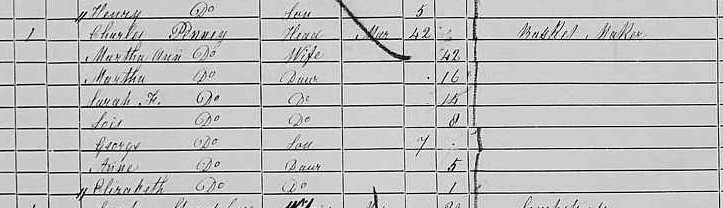 " Henry Do Son 5
1 Charles Penney Head Mar 42 Basket Maker
Martha Ann Do Wife 42
Martha Do Daur 16
Sarah F. Do Do 15
Lois Do Do 8
George Do Son 7
Anne Do Daur 5
" Elizabeth Do Do 1